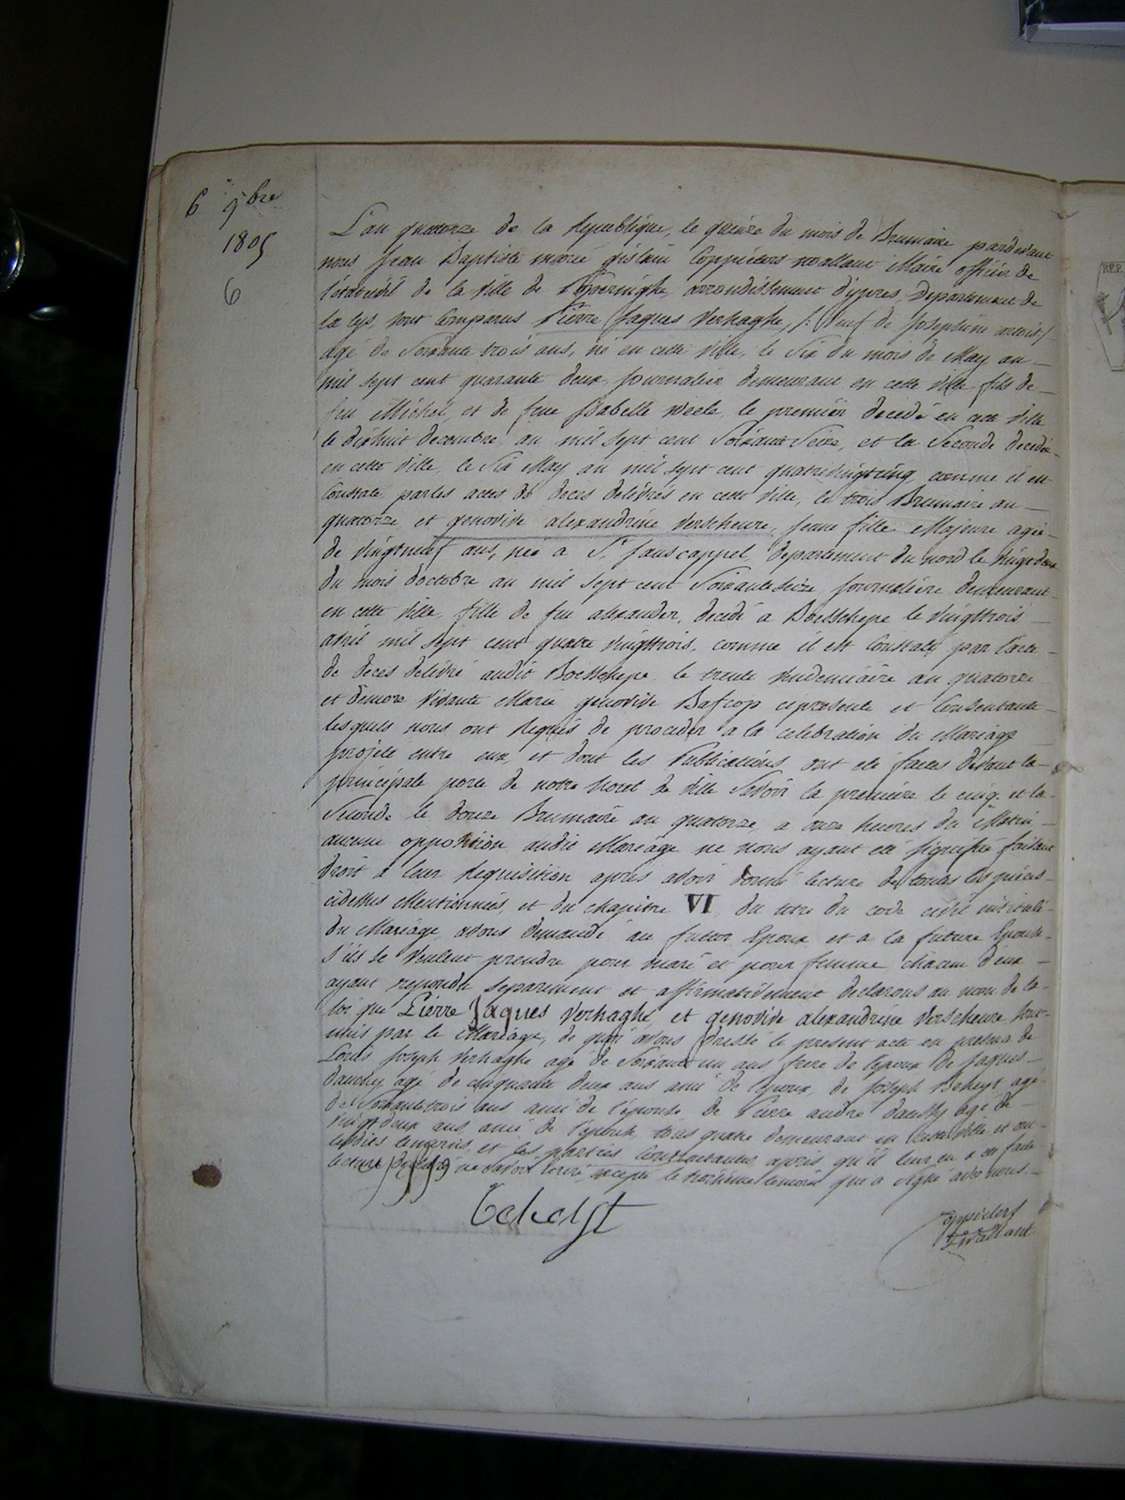 6 9bre
1805
6
L'an quatorze de la Republique, le quinze du mois de Brumaire pardevant
nous Jean Baptiste marie gislain Coppieters wallant Maire officier de
l'etat civil de la Ville de Poperinghe, arrondissement d'ypres, Departement de
la lys, sont Comparus Pierre Jaques Verhaghe, /: veuf de Josephine
agé de Soixante trois ans, né en cette Ville, le Six du mois de May an
mil sept cent quarante deux, journalier demeurant en cette Ville fils de
feu Michel, et de feue Isabelle weele, le premier decedé en cette Ville
le dixhuit decembre, an mil sept cent Soixante Seize, et la Seconde decedée
en cette Ville, le Six May an mil sept cent quatrevingtcinq comme il en
Constate par les actes de deces delivrés en cette Ville, le trois Brumaire an
quatorze et genovive alexandrine Verscheure, jeune fille Majeure agée
de vingtneuf ans, née a St. janscappel, departement du nord le vingt deux
du mois d'octobre an mil sept cent Soixante seize journalière demeurant
en cette Ville, fille de feu alexander, decedé a Boesschepe le vingttrois
avril mil sept cent quatre vingttrois, comme il est Constaté par l'acte
de deces delivré audit Boesschepe le trente vendemiaire an quatorze
et d'encore vivante Marie genovive Bafcop ci presente et Consentante
lesquels nous ont requis de proceder a la celebration du Mariage
projeté entre eux, et dont les Publications ont eté faites devant la
principale porte de notre hotel de Ville Savoir la premiere le cinq et la
Seconde le douze Brumaire an quatorze, a onze heures du Matin
aucune opposition audit Mariage ne nous ayant eté signifiée faisant
droit a leur requisition après avoir donné lecture de toutes les pièces
cidessus Mentionnées, et du chapitre VI du titre du code civil intitulé
du Mariage, avons demandé au futur Epoux et a la future Epouse
s'ils se veulent prendre pour mari et pour femme chacun d'eux
ayant repondu separement et affirmativement declarons au nom de la
loi que Pierre Jaques Verhaghe, et genovive alexandrine Verscheure sont
unis par le Mariage, de quoi avons dressé le present acte en presence de
Louis Joseph Verhaghe agé de Soixante un ans frere de l'epoux de Jaques
dauchy agé de cinquante deux ans ami de l'epoux, de Joseph Beheyt agé
de Soixantetrois ans ami de l'épouse de Pierre andre dauchy agé de
vingt deux ans ami de l'épouse, tous quatre demeurant en cette Ville et ont
lesdits temoins, et les parties Contractantes après qu'il leur en a eté faite
lecture declaré ne savoir ecrire, excepte le troisième temoin qui a signé avec nous.
Coppieters
T'wallant